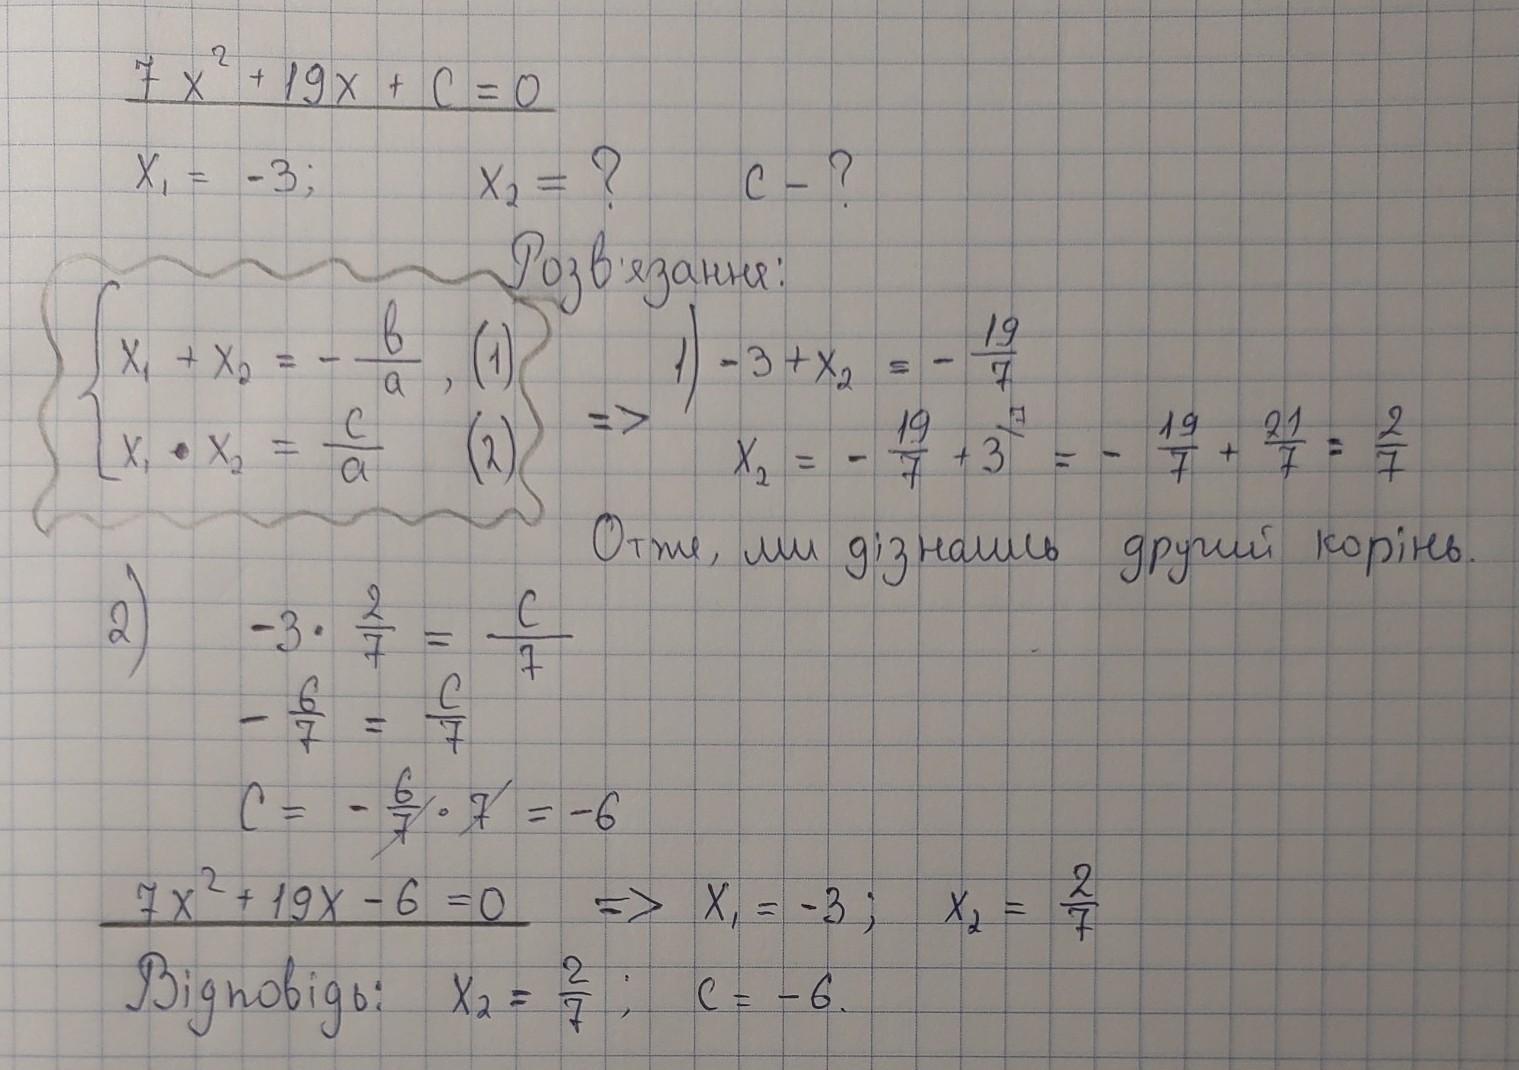 7x² + 19x + c = 0
x₁ = -3; x₂ = ? c - ?
Розв'язання:
{ x₁ + x₂ = - b/a , (1)
x₁ • x₂ = c/a (2)
=>
1) -3 + x₂ = - 19/7
x₂ = - 19/7 + 3 ⁷ = - 19/7 + 21/7 = 2/7
Отже, ми дізнались другий корінь.
2) -3 · 2/7 = c/7
- 6/7 = c/7
C = - 6/7 · 7 = -6
7x² + 19x - 6 = 0 => x₁ = -3; x₂ = 2/7
Відповідь: x₂ = 2/7 ; c = -6.